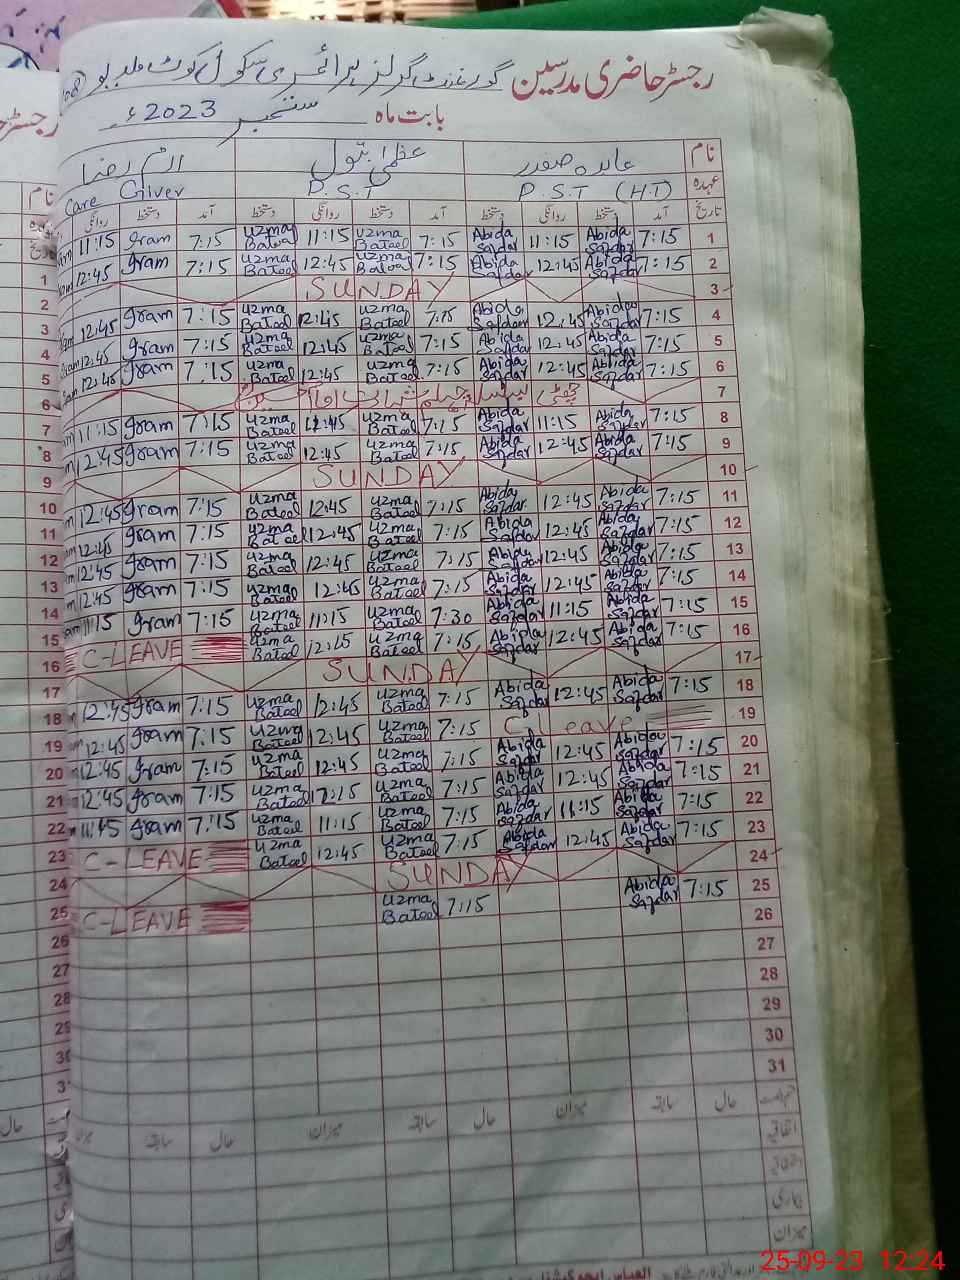 رجسٹر حاضری مدرسین گورنمنٹ گرلز پرائمری سکول کوٹ
بابت ماہ ستمبر 2023ء
نام عابدہ صفدر عظمیٰ بتول ارم رضا
عہدہ P.S.T (H.T) P.S.T Care Giver
تاریخ آمد دستخط روانگی دستخط آمد دستخط روانگی دستخط آمد دستخط روانگی
1 7:15 Abida Safdar 11:15 Abida Safdar 7:15 Uzma Batool 11:15 Uzma Batool 7:15 Iram 11:15
2 7:15 Abida Safdar 12:45 Abida Safdar 7:15 Uzma Batool 12:45 Uzma Batool 7:15 Iram 12:45
3 SUNDAY
4 7:15 Abida Safdar 12:45 Abida Safdar 7:15 Uzma Batool 12:45 Uzma Batool 7:15 Iram 12:45
5 7:15 Abida Safdar 12:45 Abida Safdar 7:15 Uzma Batool 12:45 Uzma Batool 7:15 Iram 12:45
6 7:15 Abida Safdar 12:45 Abida Safdar 7:15 Uzma Batool 12:45 Uzma Batool 7:15 Iram 12:45
7 چھٹی بسلسلہ چہلم
8 7:15 Abida Safdar 11:15 Abida Safdar 7:15 Uzma Batool Uzma Batool 7:15 Iram 11:15
9 7:15 Abida Safdar 12:45 Abida Safdar 7:15 Uzma Batool 12:45 Uzma Batool 7:15 Iram 12:45
10 SUNDAY
11 7:15 Abida Safdar 12:45 Abida Safdar 7:15 Uzma Batool 12:45 Uzma Batool 7:15 Iram 12:45
12 7:15 Abida Safdar 12:45 Abida Safdar 7:15 Uzma Batool 12:45 Uzma Batool 7:15 Iram 12:45
13 7:15 Abida Safdar 12:45 Abida Safdar 7:15 Uzma Batool 12:45 Uzma Batool 7:15 Iram 12:45
14 7:15 Abida Safdar 12:45 Abida Safdar 7:15 Uzma Batool 12:45 Uzma Batool 7:15 Iram 12:45
15 7:15 Abida Safdar 11:15 Abida Safdar 7:30 Uzma Batool 11:15 Uzma Batool 7:15 Iram 11:15
16 7:15 Abida Safdar 12:45 Abida Safdar 7:15 Uzma Batool Uzma Batool C-LEAVE
17 SUNDAY
18 7:15 Abida Safdar 12:45 Abida Safdar 7:15 Uzma Batool 12:45 Uzma Batool 7:15 Iram 12:45
19 C-Leave 7:15 Uzma Batool 12:45 Uzma Batool 7:15 Iram 12:45
20 7:15 Abida Safdar 12:45 Abida Safdar 7:15 Uzma Batool 12:45 Uzma Batool 7:15 Iram 12:45
21 7:15 Abida Safdar 12:45 Abida Safdar 7:15 Uzma Batool Uzma Batool 7:15 Iram 12:45
22 7:15 Abida Safdar 11:15 Abida Safdar 7:15 Uzma Batool 11:15 Uzma Batool 7:15 Iram
23 7:15 Abida Safdar 12:45 Abida Safdar 7:15 Uzma Batool 12:45 Uzma Batool C-LEAVE
24 SUNDAY
25 7:15 Abida Safdar 7:15 Uzma Batool C-LEAVE
26
27
28
29
30
31
حال سابقہ میزان حال سابقہ میزان حال سابقہ میزان
اتفاقیہ
بیماری
میزان
25-09-23 12:24